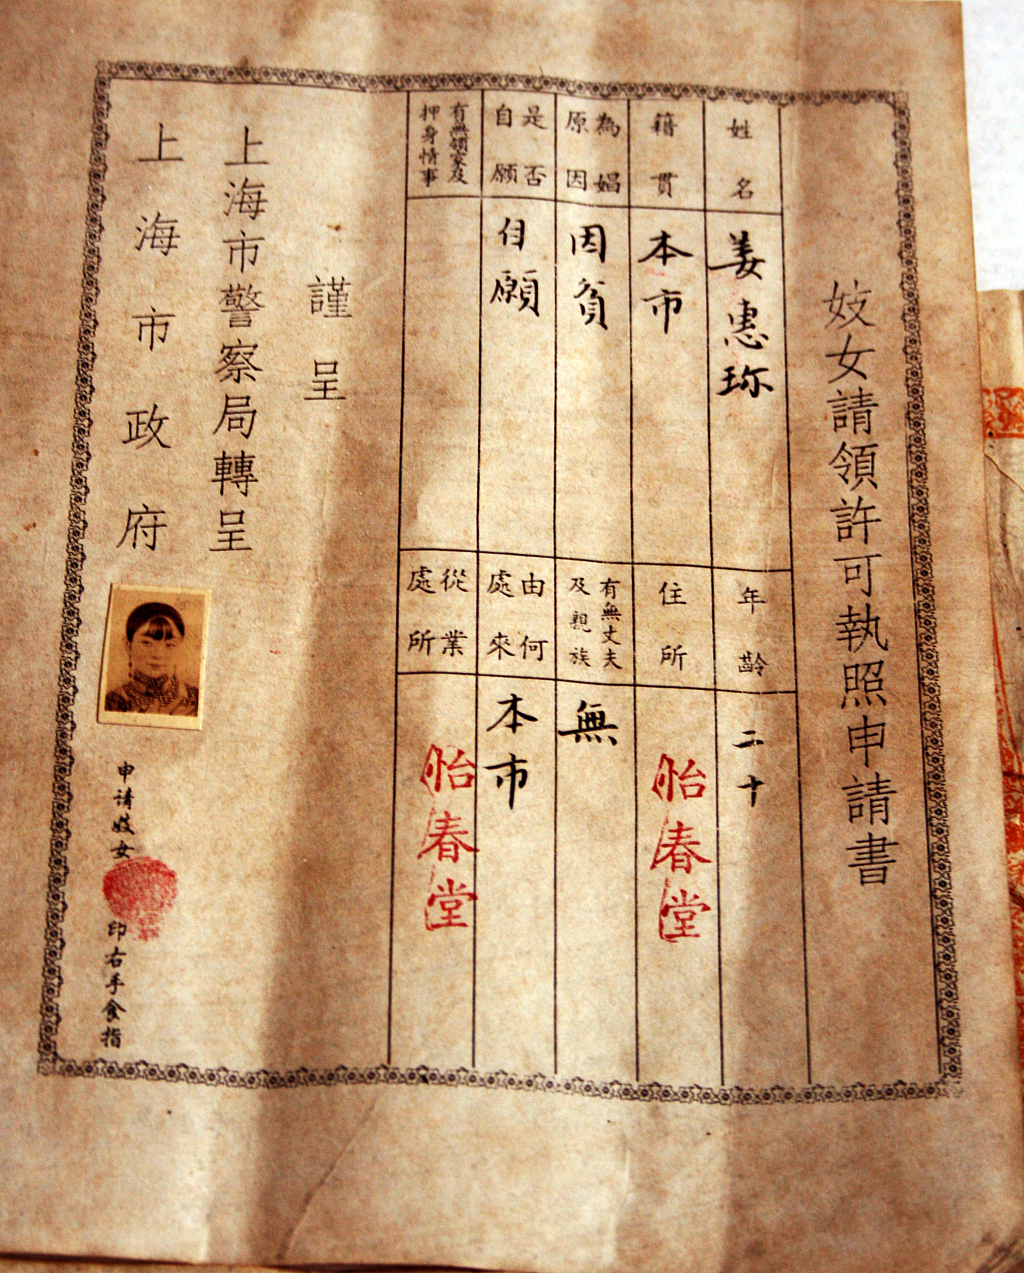 妓女請領許可執照申請書
姓名
姜惠珎
年齡
二十
籍貫
本市
住所
怡春堂
為娼原因
因貧
有無丈夫及親族
無
是否自願
自願
由何處來
本市
有無領家及押身情事
從業處所
怡春堂
謹呈
上海市警察局轉呈
上海市政府
申请妓女
印右手食指